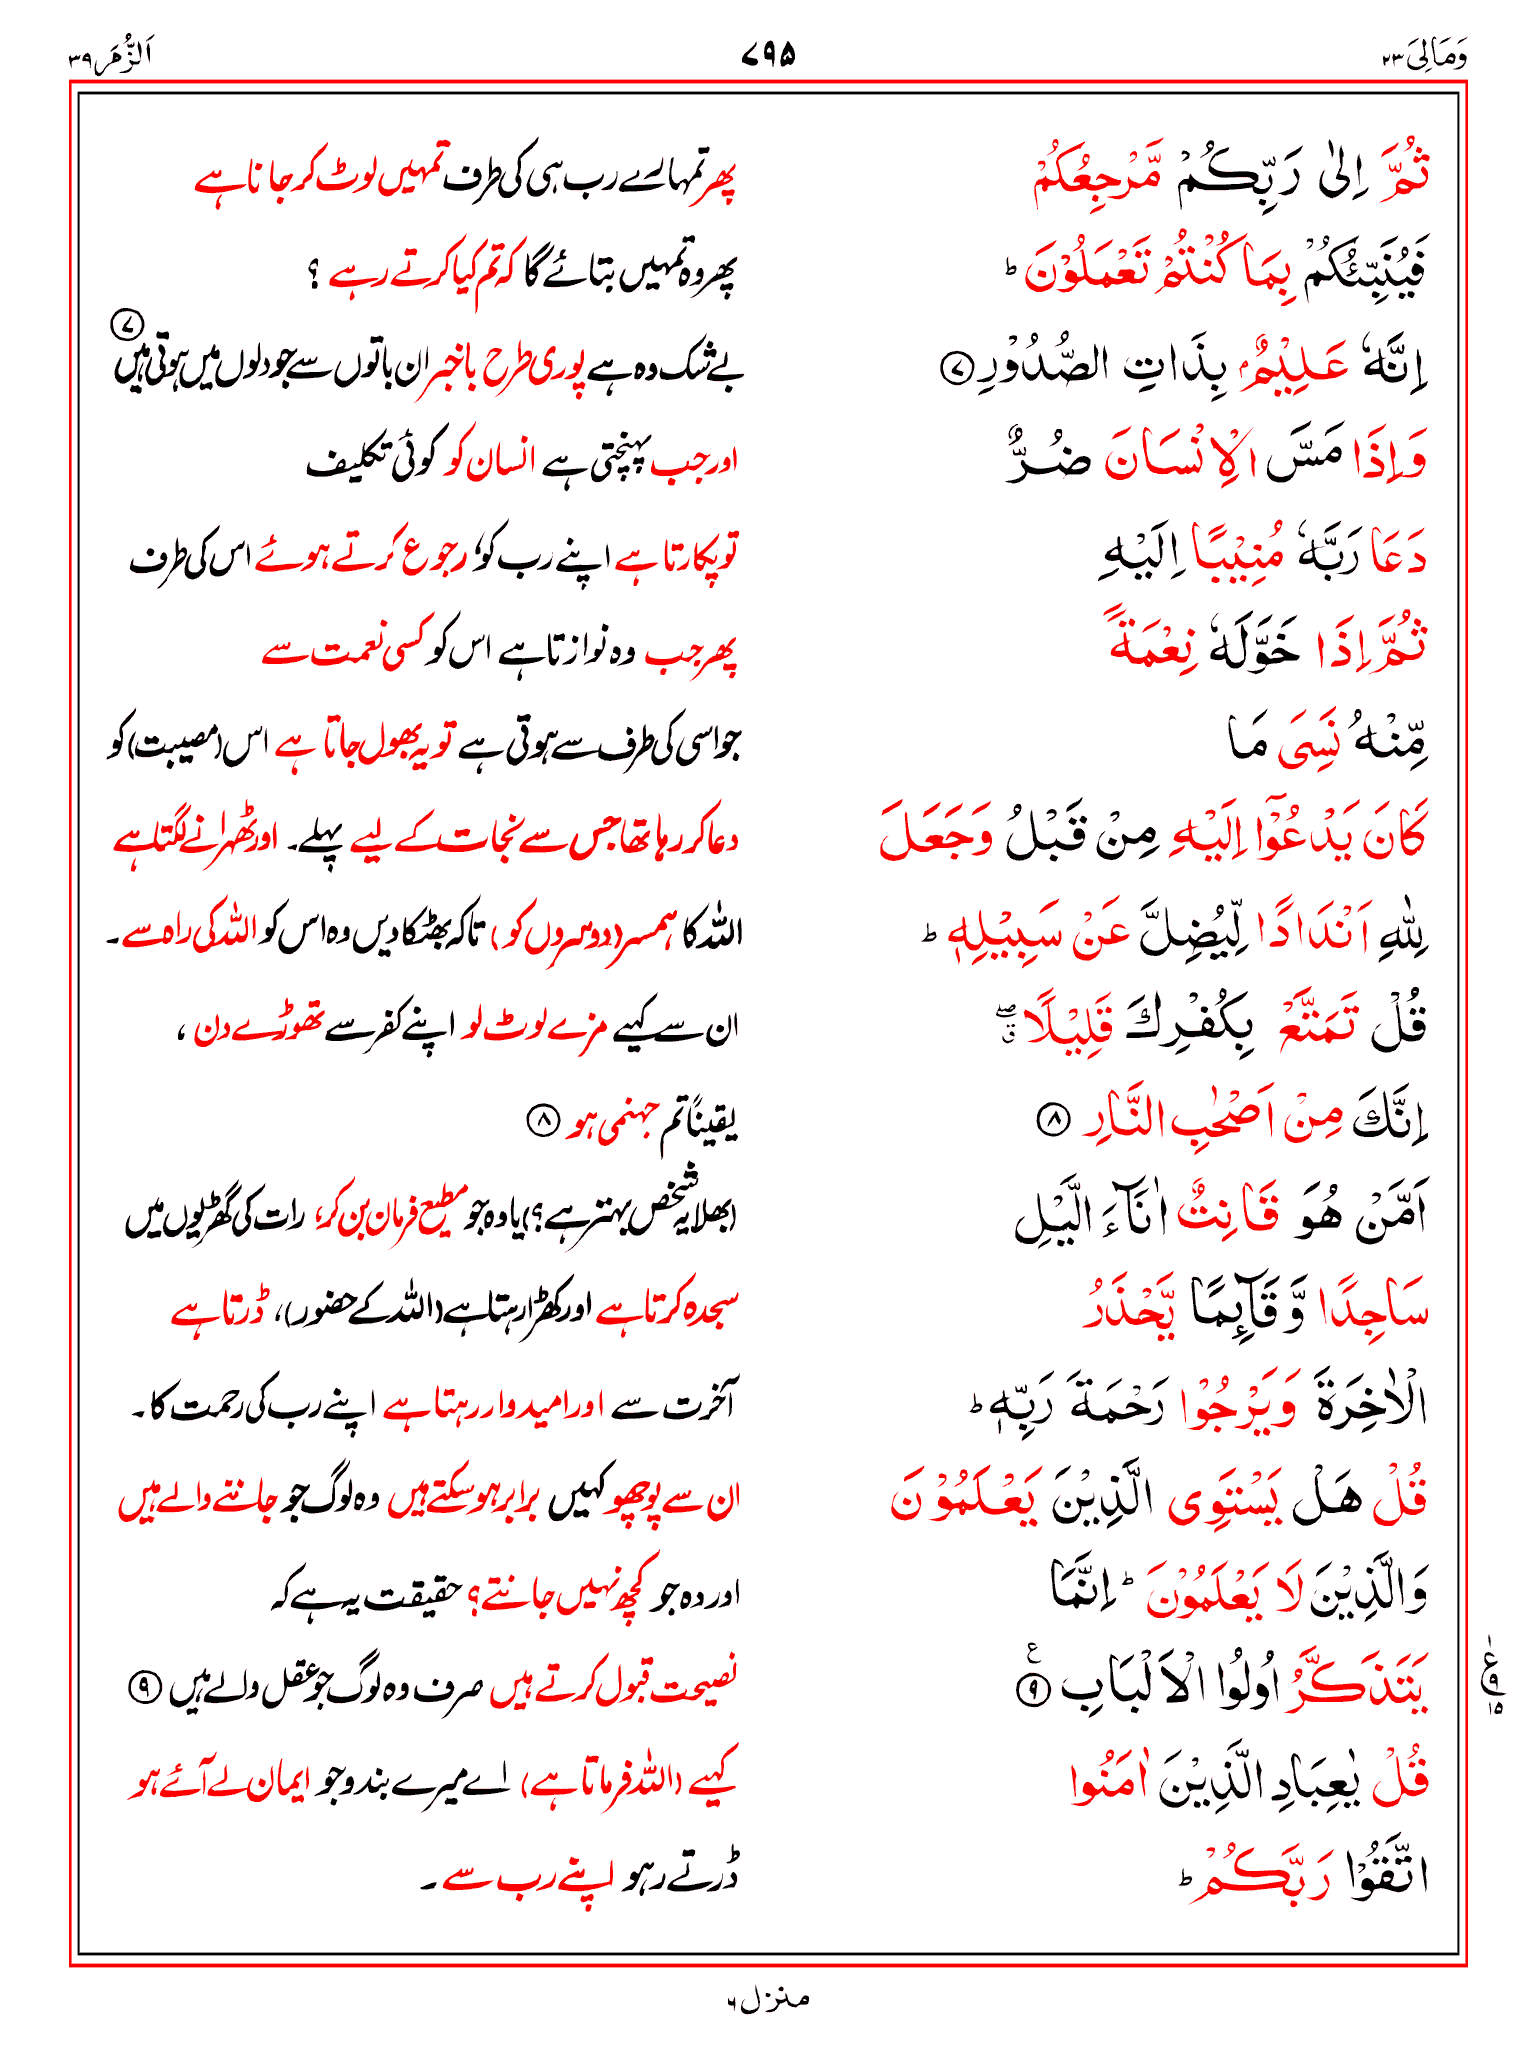 وَمَالِیَ ۲۳ ۷۹۵ اَلزُّمَر ۳۹
ثُمَّ اِلٰی رَبِّکُمْ مَّرْجِعُکُمْ پھر تمہارے رب ہی کی طرف تمہیں لوٹ کر جانا ہے
فَیُنَبِّئُکُمْ بِمَا کُنْتُمْ تَعْمَلُوْنَ ؕ پھر وہ تمہیں بتائے گا کہ تم کیا کرتے رہے ؟
اِنَّهٗ عَلِیْمٌۢ بِذَاتِ الصُّدُوْرِ ﴿۷﴾ بے شک وہ ہے پوری طرح باخبر ان باتوں سے جو دلوں میں ہوتی ہیں ﴿۷﴾
وَاِذَا مَسَّ الْاِنْسَانَ ضُرٌّ اور جب پہنچتی ہے انسان کو کوئی تکلیف
دَعَا رَبَّهٗ مُنِیْبًا اِلَیْهِ تو پکارتا ہے اپنے رب کو، رجوع کرتے ہوئے اس کی طرف
ثُمَّ اِذَا خَوَّلَهٗ نِعْمَةً پھر جب وہ نوازتا ہے اس کو کسی نعمت سے
مِّنْهُ نَسِیَ مَا جو اسی کی طرف سے ہوتی ہے تو یہ بھول جاتا ہے اس (مصیبت) کو
کَانَ یَدْعُوْۤا اِلَیْهِ مِنْ قَبْلُ وَجَعَلَ دعا کر رہا تھا جس سے نجات کے لیے پہلے۔ اور ٹھہرانے لگتا ہے
لِلّٰهِ اَنْدَادًا لِّیُضِلَّ عَنْ سَبِیْلِهٖ ؕ اللہ کا ہمسر (دوسروں کو) تاکہ بھٹکا دیں وہ اس کو اللہ کی راہ سے۔
قُلْ تَمَتَّعْ بِکُفْرِكَ قَلِیْلًا ۖۗ ان سے کہیے مزے لوٹ لو اپنے کفر سے تھوڑے دن ،
اِنَّكَ مِنْ اَصْحٰبِ النَّارِ ﴿۸﴾ یقیناً تم جہنمی ہو ﴿۸﴾
اَمَّنْ هُوَ قَانِتٌ اٰنَآءَ الَّیْلِ (بھلا یہ شخص بہتر ہے؟) یا وہ جو مطیع فرمان بن کر، رات کی گھڑیوں میں
سَاجِدًا وَّقَآىِٕمًا یَّحْذَرُ سجدہ کرتا ہے اور کھڑا رہتا ہے (اللہ کے حضور)، ڈرتا ہے
الْاٰخِرَةَ وَیَرْجُوْا رَحْمَةَ رَبِّهٖ ؕ آخرت سے اور امیدوار رہتا ہے اپنے رب کی رحمت کا۔
قُلْ هَلْ یَسْتَوِی الَّذِیْنَ یَعْلَمُوْنَ ان سے پوچھو کہیں برابر ہو سکتے ہیں وہ لوگ جو جاننے والے ہیں
وَالَّذِیْنَ لَا یَعْلَمُوْنَ ؕ اِنَّمَا اور وہ جو کچھ نہیں جانتے؟ حقیقت یہ ہے کہ
یَتَذَکَّرُ اُولُوا الْاَلْبَابِ ﴿۹﴾ ع نصیحت قبول کرتے ہیں صرف وہ لوگ جو عقل والے ہیں ﴿۹﴾
ع ۹ ۱۵
قُلْ یٰعِبَادِ الَّذِیْنَ اٰمَنُوا کہیے (اللہ فرماتا ہے) اے میرے بندو جو ایمان لے آئے ہو
اتَّقُوْا رَبَّکُمْ ؕ ڈرتے رہو اپنے رب سے ۔
منزل ۶